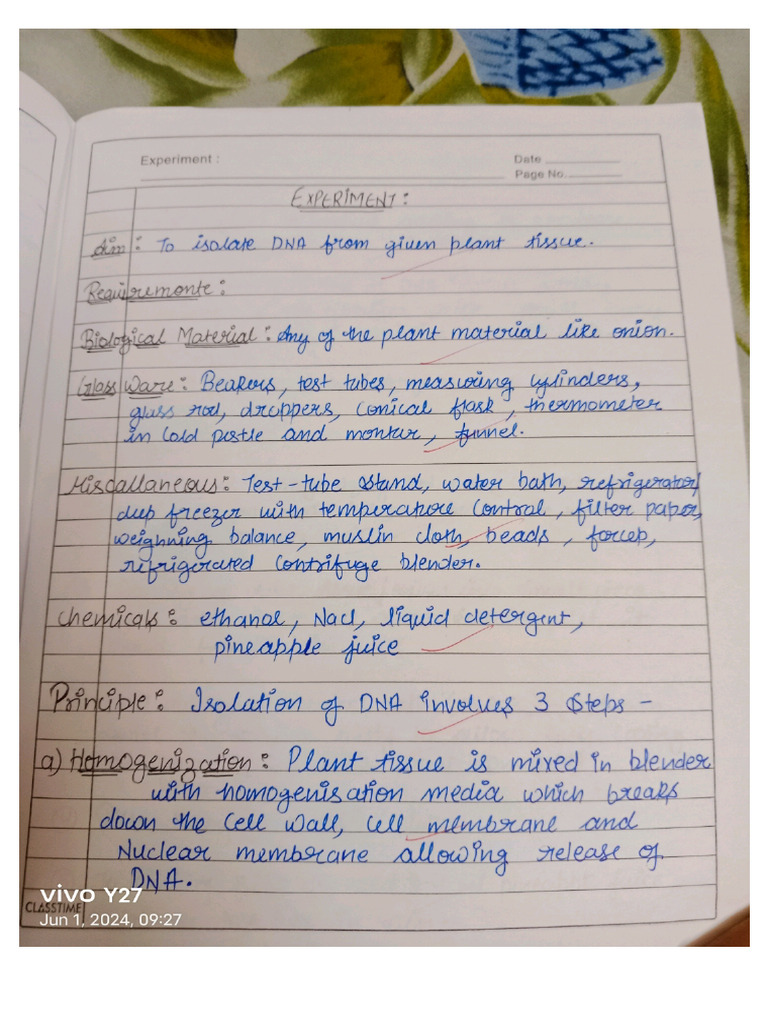 Experiment :
Date
Page No.
EXPERIMENT:
Aim : To isolate DNA from given plant tissue.
Requiremonte :
Biological Material : Any of the plant material like onion.
Glass Ware : Beakers, test tubes, measuring cylinders,
glass rod, droppers, conical flask, thermometer
in cold pestle and montur, funnel.
Miscallaneous : Test-tube stand, water bath, refrigerator/
deep freezer with temperature control, filter paper,
weighning balance, muslin cloth, beads, forcep,
refrigerated centrifuge blender.
Chemicals : ethanol, Nacl, liquid detergent,
pineapple juice
Principle : Isolation of DNA involves 3 steps -
a) Homogenization : Plant tissue is mixed in blender
with homogenisation media which breaks
down the cell wall, cell membrane and
Nuclear membrane allowing release of
DNA.
vivo Y27
CLASSTIME
Jun 1, 2024, 09:27